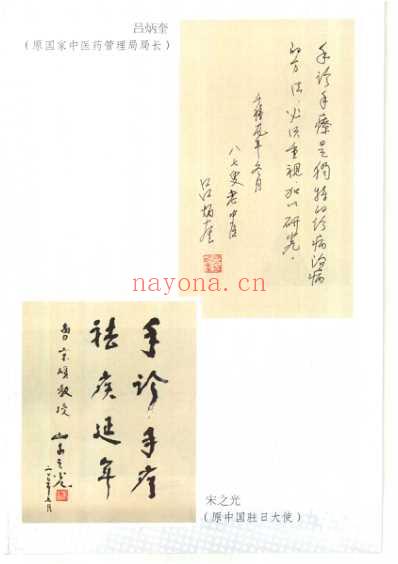 吕炳奎
(原国家中医药管理局局长)
手诊手療是獨特的诊病治病
的方法，必须重視，加以研究。
八七叟老中医
吕炳奎
nayona.cn
手诊手疗
祛疾延年
教授
宋之光
(原中国驻日大使)